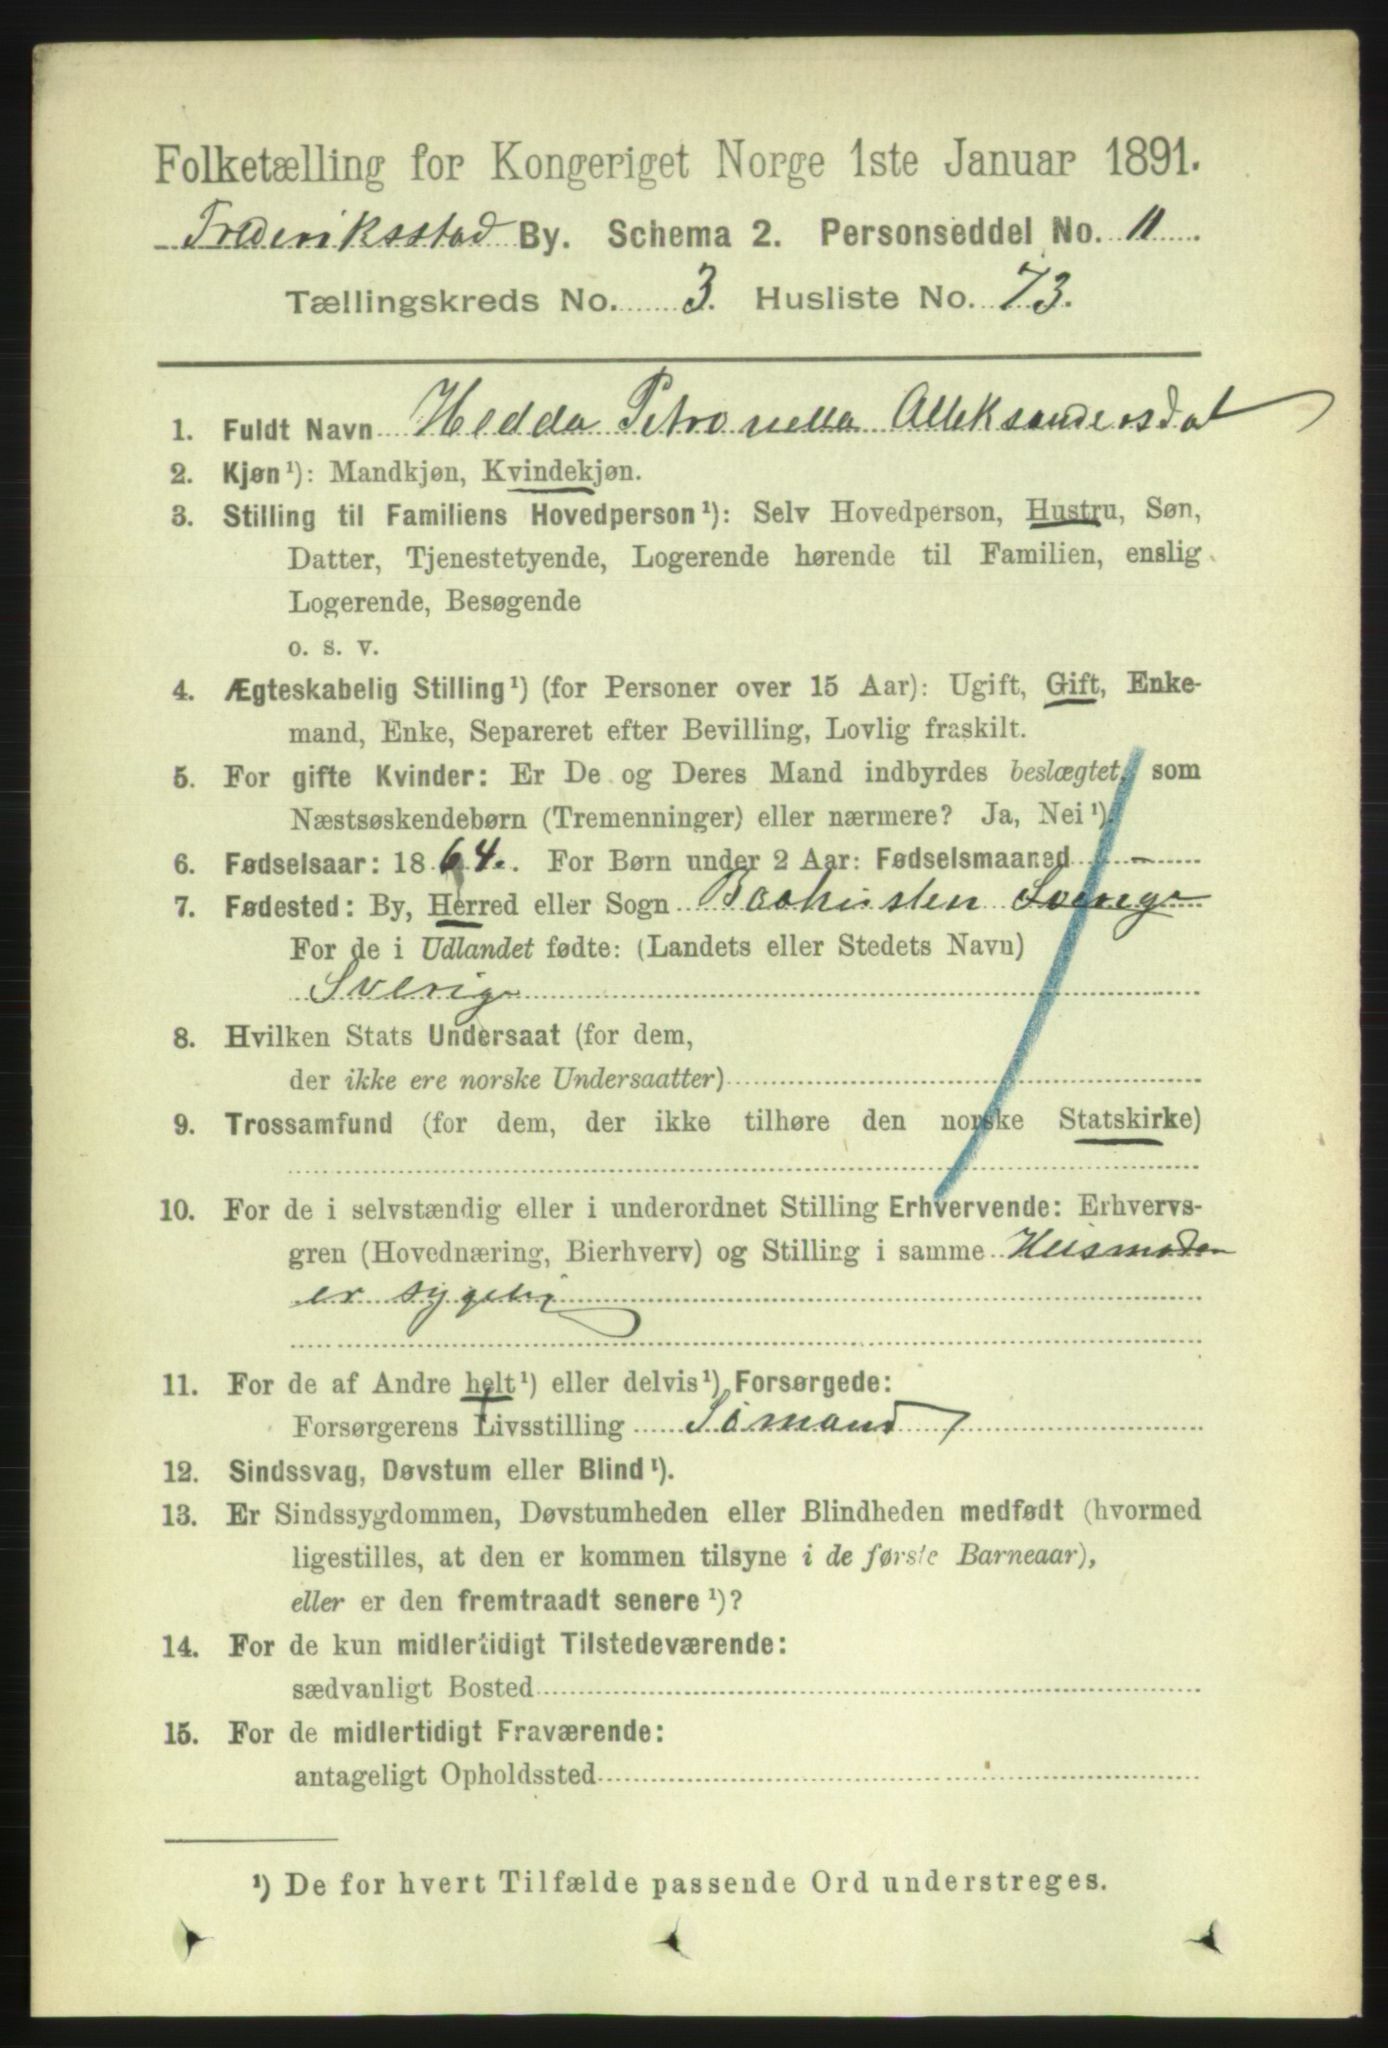 Folketælling for Kongeriget Norge 1ste Januar 1891.
Frederiksstad By. Schema 2. Personseddel No. 11
Tællingskreds No. 3. Husliste No. 73.
1. Fuldt Navn Hedda Petronella Alleksandersdat
2. Kjøn¹): Mandkjøn, Kvindekjøn.
3. Stilling til Familiens Hovedperson¹): Selv Hovedperson, Hustru, Søn,
Datter, Tjenestetyende, Logerende hørende til Familien, enslig
Logerende, Besøgende
o. s. v.
4. Ægteskabelig Stilling¹) (for Personer over 15 Aar): Ugift, Gift, Enke-
mand, Enke, Separeret efter Bevilling, Lovlig fraskilt.
5. For gifte Kvinder: Er De og Deres Mand indbyrdes beslægtet, som
Næstsøskendebørn (Tremenninger) eller nærmere? Ja, Nei¹).
6. Fødselsaar: 1864. For Børn under 2 Aar: Fødselsmaaned -
7. Fødested: By, Herred eller Sogn Baahuslen Sverige
For de i Udlandet fødte: (Landets eller Stedets Navn)
Sverige
8. Hvilken Stats Undersaat (for dem,
der ikke ere norske Undersaatter)
9. Trossamfund (for dem, der ikke tilhøre den norske Statskirke)
10. For de i selvstændig eller i underordnet Stilling Erhvervende: Erhvervs-
gren (Hovednæring, Bierhverv) og Stilling i samme Huismoder
er sygelig
11. For de af Andre helt¹) eller delvis¹) Forsørgede:
Forsørgerens Livsstilling Sømand
12. Sindssvag, Døvstum eller Blind¹).
13. Er Sindssygdommen, Døvstumheden eller Blindheden medfødt (hvormed
ligestilles, at den er kommen tilsyne i de første Barneaar),
eller er den fremtraadt senere¹)?
14. For de kun midlertidigt Tilstedeværende:
sædvanligt Bosted
15. For de midlertidigt Fraværende:
antageligt Opholdssted
¹) De for hvert Tilfælde passende Ord understreges.